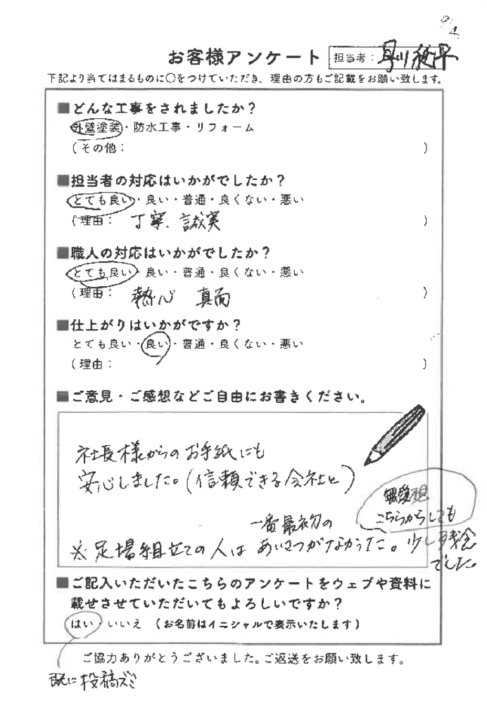 お客様アンケート 担当者:
下記より当てはまるものに○をつけていただき、理由の方もご記載をお願い致します。
■どんな工事をされましたか?
外壁塗装・防水工事・リフォーム
(その他: )
■担当者の対応はいかがでしたか?
とても良い・良い・普通・良くない・悪い
(理由: 丁寧、誠実 )
■職人の対応はいかがでしたか?
とても良い・良い・普通・良くない・悪い
(理由: 熱心 真面 )
■仕上がりはいかがですか?
とても良い・良い・普通・良くない・悪い
(理由: )
■ご意見・ご感想などご自由にお書きください。
社長様からのお手紙にも
安心しました。(信頼できる会社と)
こちらからしても
一番最初の
※足場組立ての人は あいさつがなかった。少し残念
でした。
■ご記入いただいたこちらのアンケートをウェブや資料に
載せさせていただいてもよろしいですか?
はい・いいえ (お名前はイニシャルで表示いたします)
ご協力ありがとうございました。ご返送をお願い致します。
既に投稿ズミ